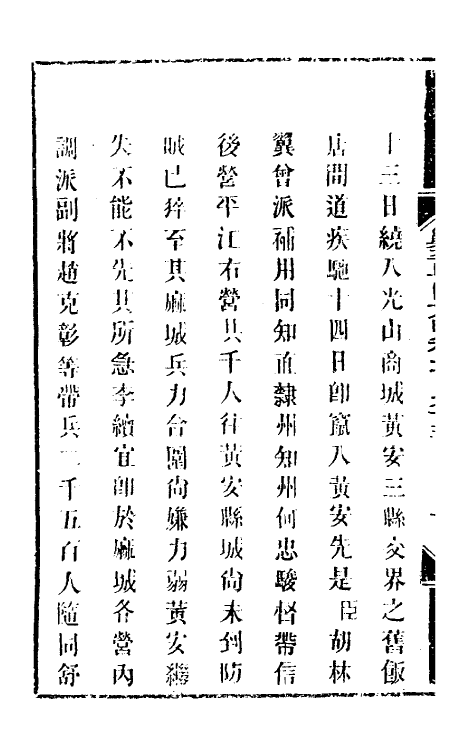 十三日繞入光山商城黃安三縣交界之舊飯
店間道疾馳十四日卽竄入黃安先是臣胡林
翼曾派補用同知直隸州知州何忠駿督帶信
後營平江右營共千人往黃安縣城尙未到防
賊已猝至其麻城兵力合圍尙嫌力弱黃安繼
失不能不先其所急李續宜卽於麻城各營內
調派副將趙克彰等帶兵二千五百人隨同舒